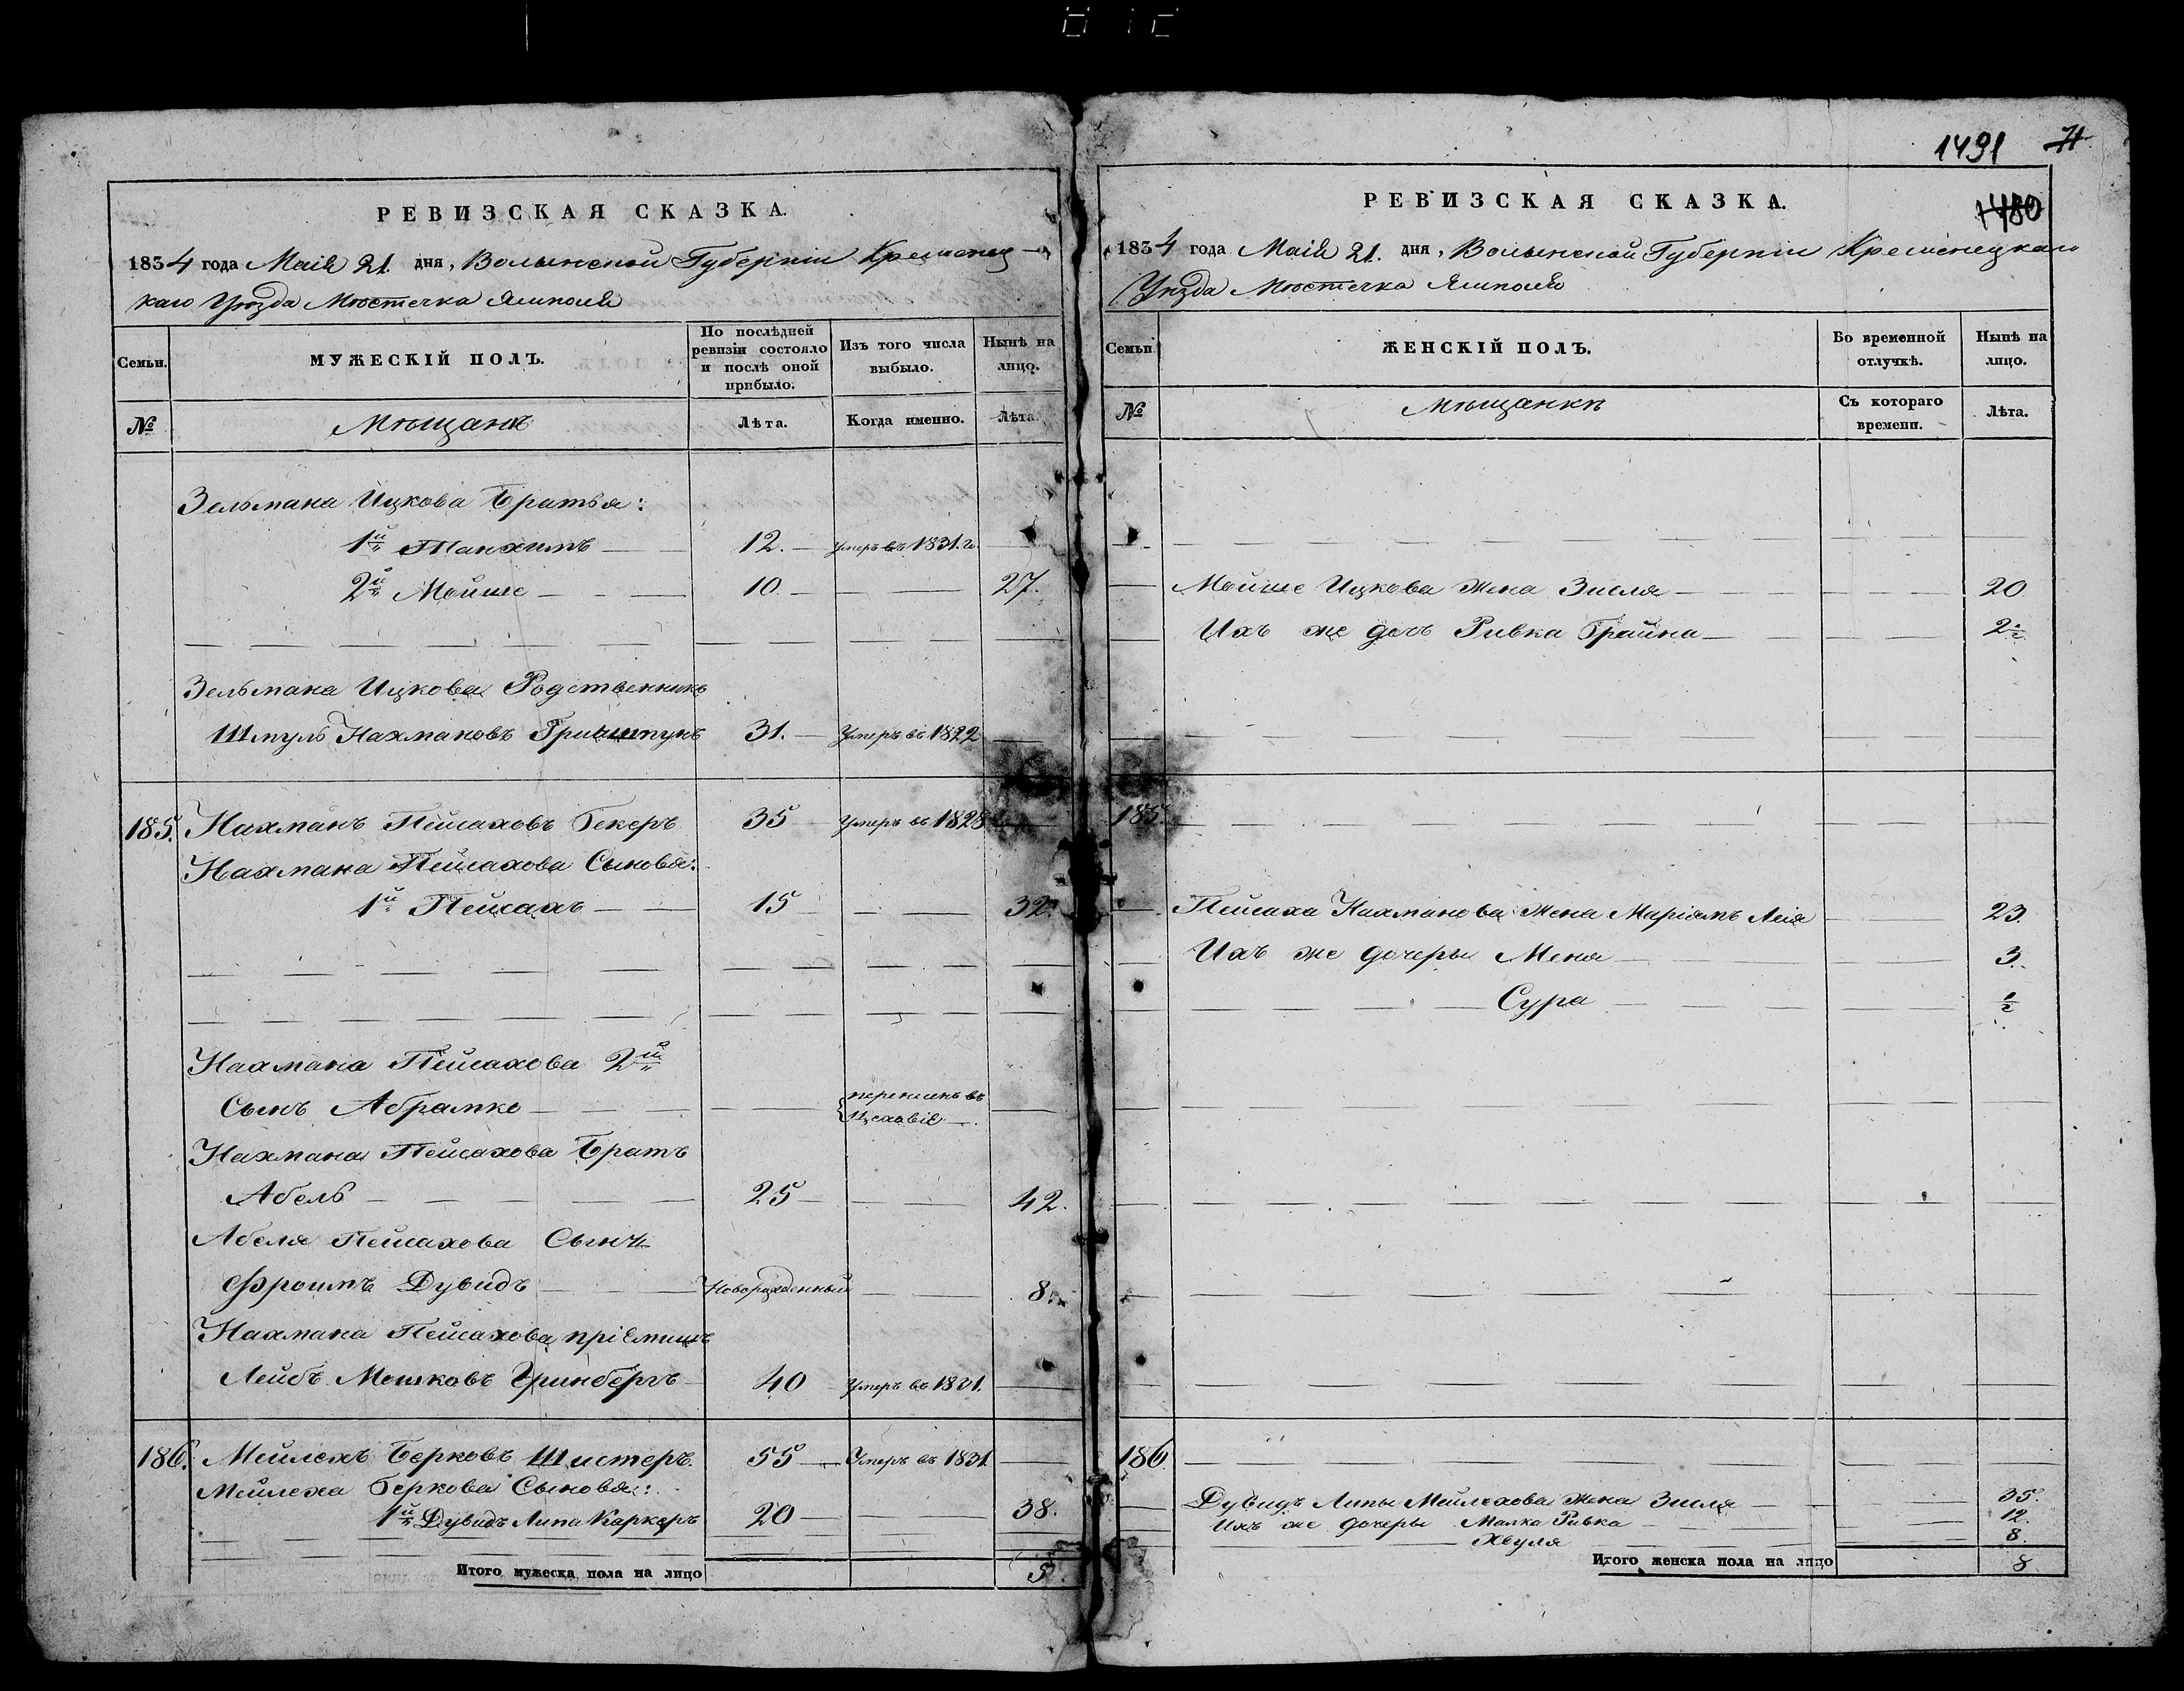 1491 71
1480
РЕВИЗСКАЯ СКАЗКА.
1834 года Маія 21. дня, Волынской Губерніи Кременец-
каго Уѣзда Мѣстечка Ямполя
Семьи.
МУЖЕСКІЙ ПОЛЪ.
По послѣдней ревизіи состояло и послѣ оной прибыло.
Изъ того числа выбыло.
Нынѣ на лицо.
№
Мѣщанъ
Лѣта.
Когда именно.
Лѣта.
Зельмана Ицкова Братья:
1й Танхимъ 12. Умеръ въ 1831. го.
2й Мойше 10. 27.
Зельмана Ицкова Родственникъ
Шмуль Нахмановъ 31. Умеръ въ 1822
185. Нахманъ Пейсаховъ Бекеръ 35 Умеръ въ 1828
Нахмана Пейсахова Сыновья:
1й Пейсахъ 15 32.
Нахмана Пейсахова 2й
Сынъ Абрамко перепис. въ Цеховіе
Нахмана Пейсахова Братъ
Абель 25 42.
Абеля Пейсахова Сынъ
Фроимъ Дувидъ Новорожденный 8.
Нахмана Пейсахова пріемышъ
Лейбъ Мошковъ Гринбергъ 40 Умеръ въ 1831.
186. Мейлехъ Берковъ Шистеръ. 55 Умеръ въ 1831.
Мейлеха Беркова Сыновья:
1й Дувидъ Липа Каркеръ 20 38.
Итого мужеска пола на лицо 5.
РЕВИЗСКАЯ СКАЗКА.
1834 года Маія 21. дня, Волынской Губерніи Кременецкаго
Уѣзда Мѣстечка Ямполя
Семьи.
ЖЕНСКІЙ ПОЛЪ.
Во временной отлучкѣ.
Нынѣ на лицо.
№
Мѣщанкѣ
Съ котораго времени.
Лѣта.
Мойше Ицкова Жена Зисля 20
Ихъ же дочь Ривка Брайна 2
185.
Пейсаха Нахманова Жена Маріямъ Лея 23.
Ихъ же дочеры Меня 3.
Сура ½
186
Дувидъ Липы Мейлехова Жена Зисля 35.
Ихъ же дочеры Малка Ривка 12.
Хвуля 8.
Итого женска пола на лицо 8